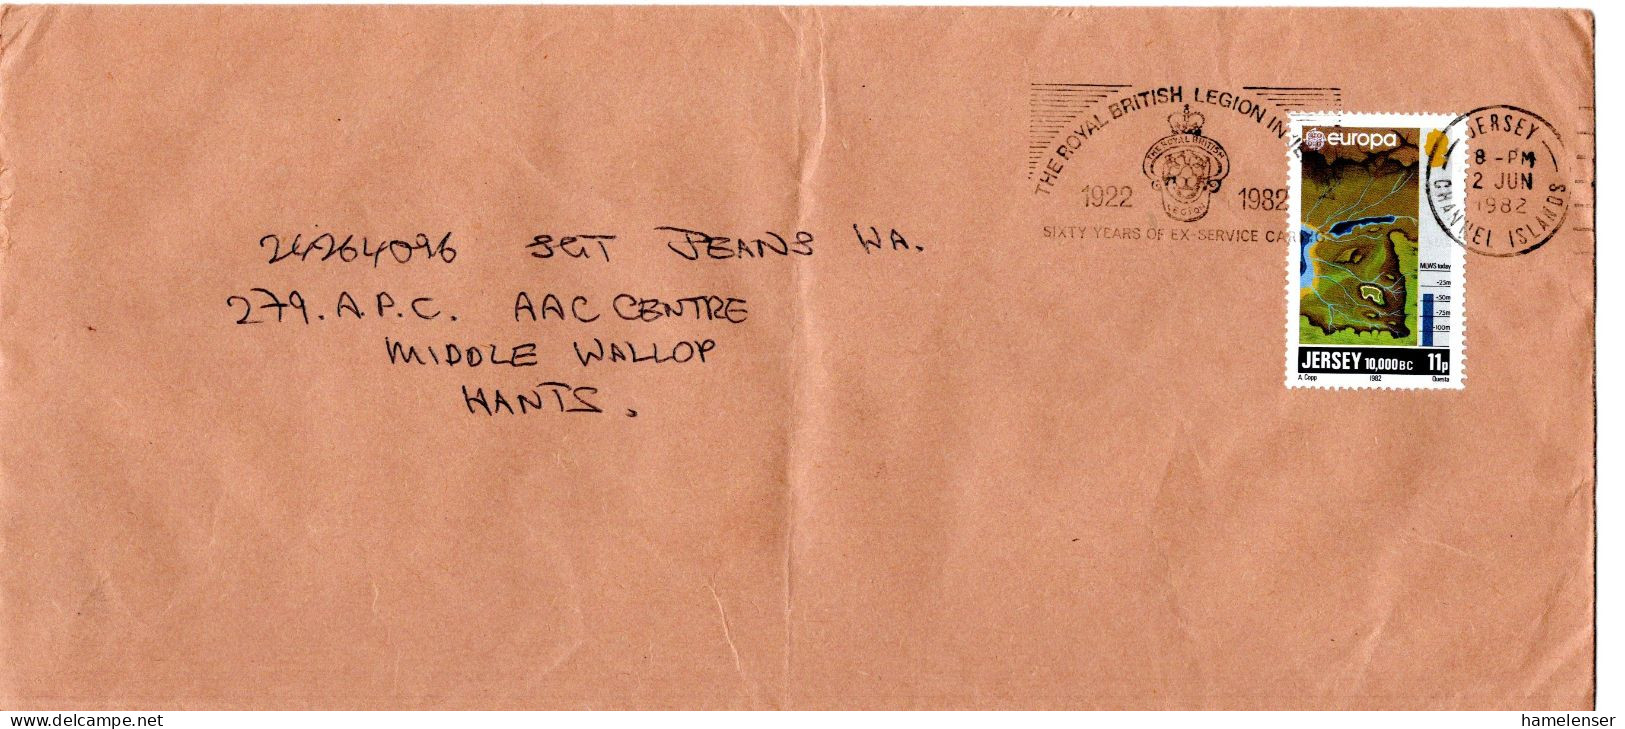 THE ROYAL BRITISH LEGION IN
THE ROYAL BRITISH
LEGION
1922 1982
SIXTY YEARS OF EX-SERVICE CARING
JERSEY
8 - PM
2 JUN
1982
CHANNEL ISLANDS
europa
MLWS today
-25m
-50m
-75m
-100m
JERSEY 10,000 BC 11p
A. Copp 1982 Questa
SGT JEANS WA.
279. A.P.C. AAC CENTRE
MIDDLE WALLOP
HANTS.
www.delcampe.net
hamelenser